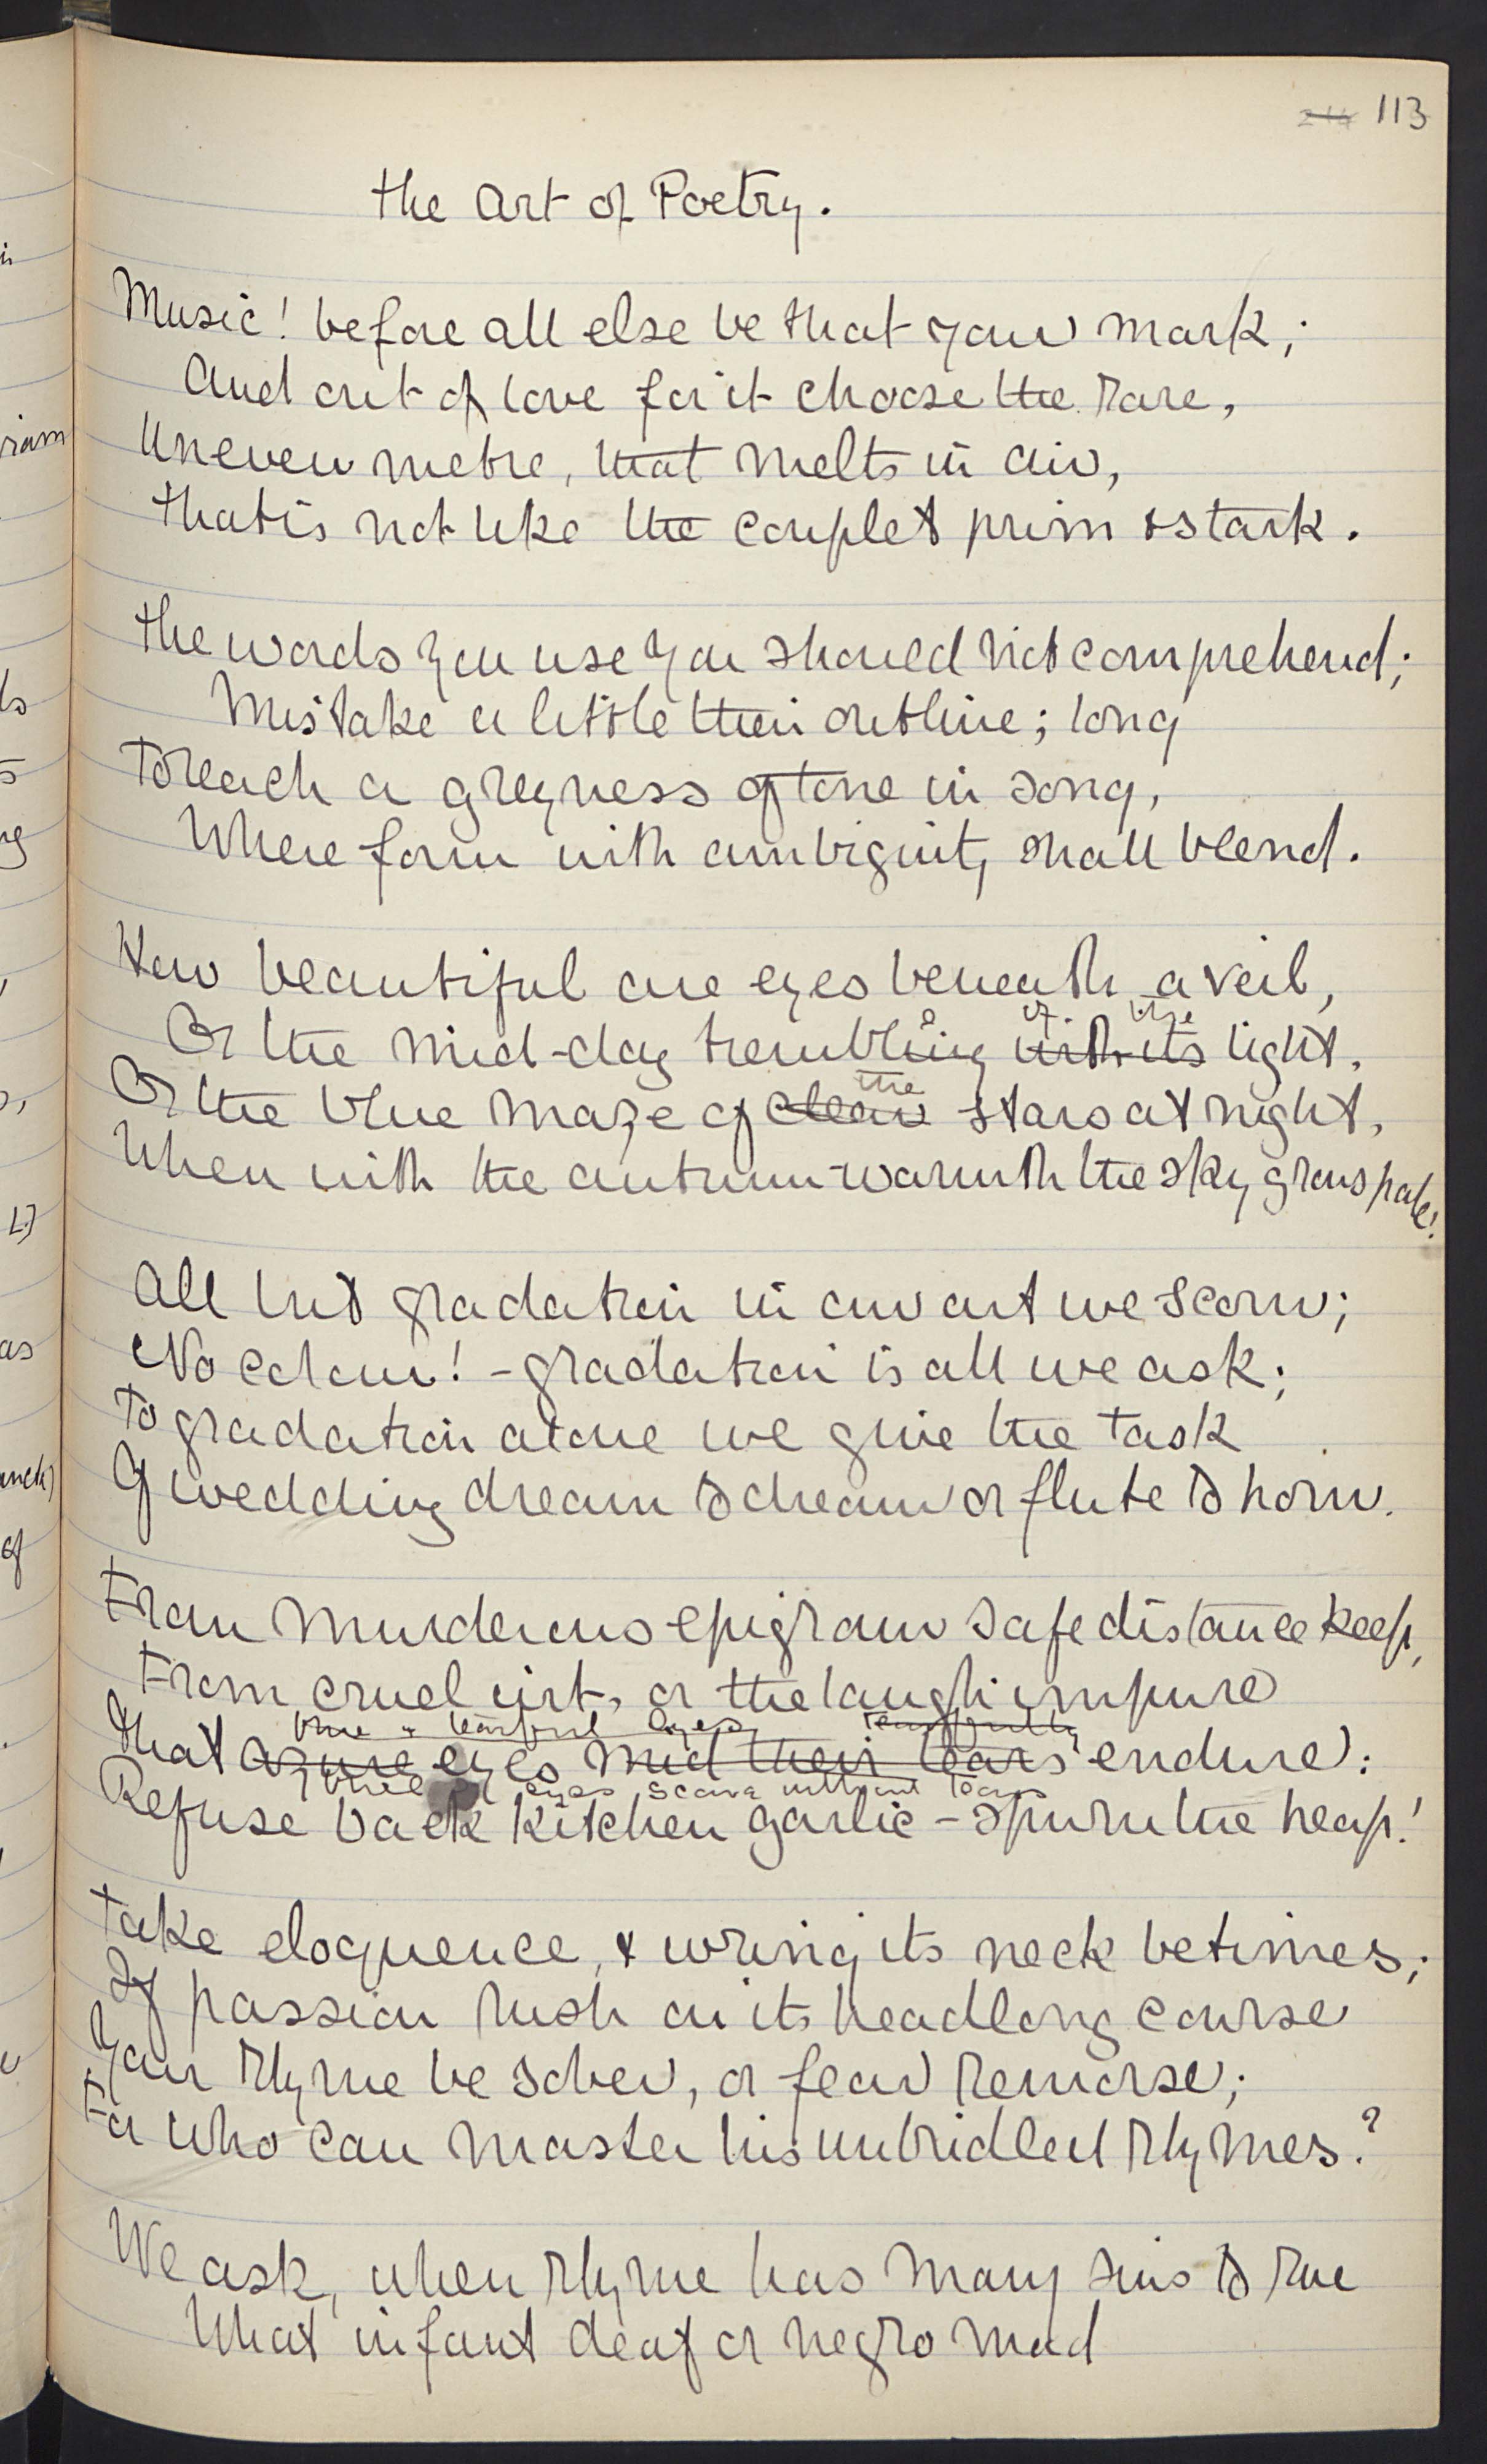 113
The Art of Poetry.
Music! before all else be that your mark;
And out of love for it choose the rare,
Uneven metre, that melts in air,
That is not like the couplet prim & stark.
The words you use you should not comprehend;
Mistake a little their outline; long
To reach a greyness of tone in song,
Where form with ambiguity shall blend.
How beautiful are eyes beneath a veil,
of the
Or the mid-day trembling with its light,
the
Or the blue maze of clear stars at night,
When with the autumn-warmth the sky grows pale!
All but gradation in our art we scorn;
No colour! - gradation is all we ask;
To gradation alone we give the task
Of wedding dream to dream or flute to horn.
From murderous epigram safe distance keep,
From cruel wit, or the laugh impure
blue & tearful eyes tearfully
That azure eyes mid their tears endure:
blue eyes scarce without tears
Refuse back kitchen garlic - spurn the heap!
Take eloquence, & wring its neck betimes;
If passion rush on its headlong course
Your rhyme be sober, or fear remorse;
For who can master his unbridled rhymes?
We ask, when rhyme has many sins to rue
What infant deaf or negro mad